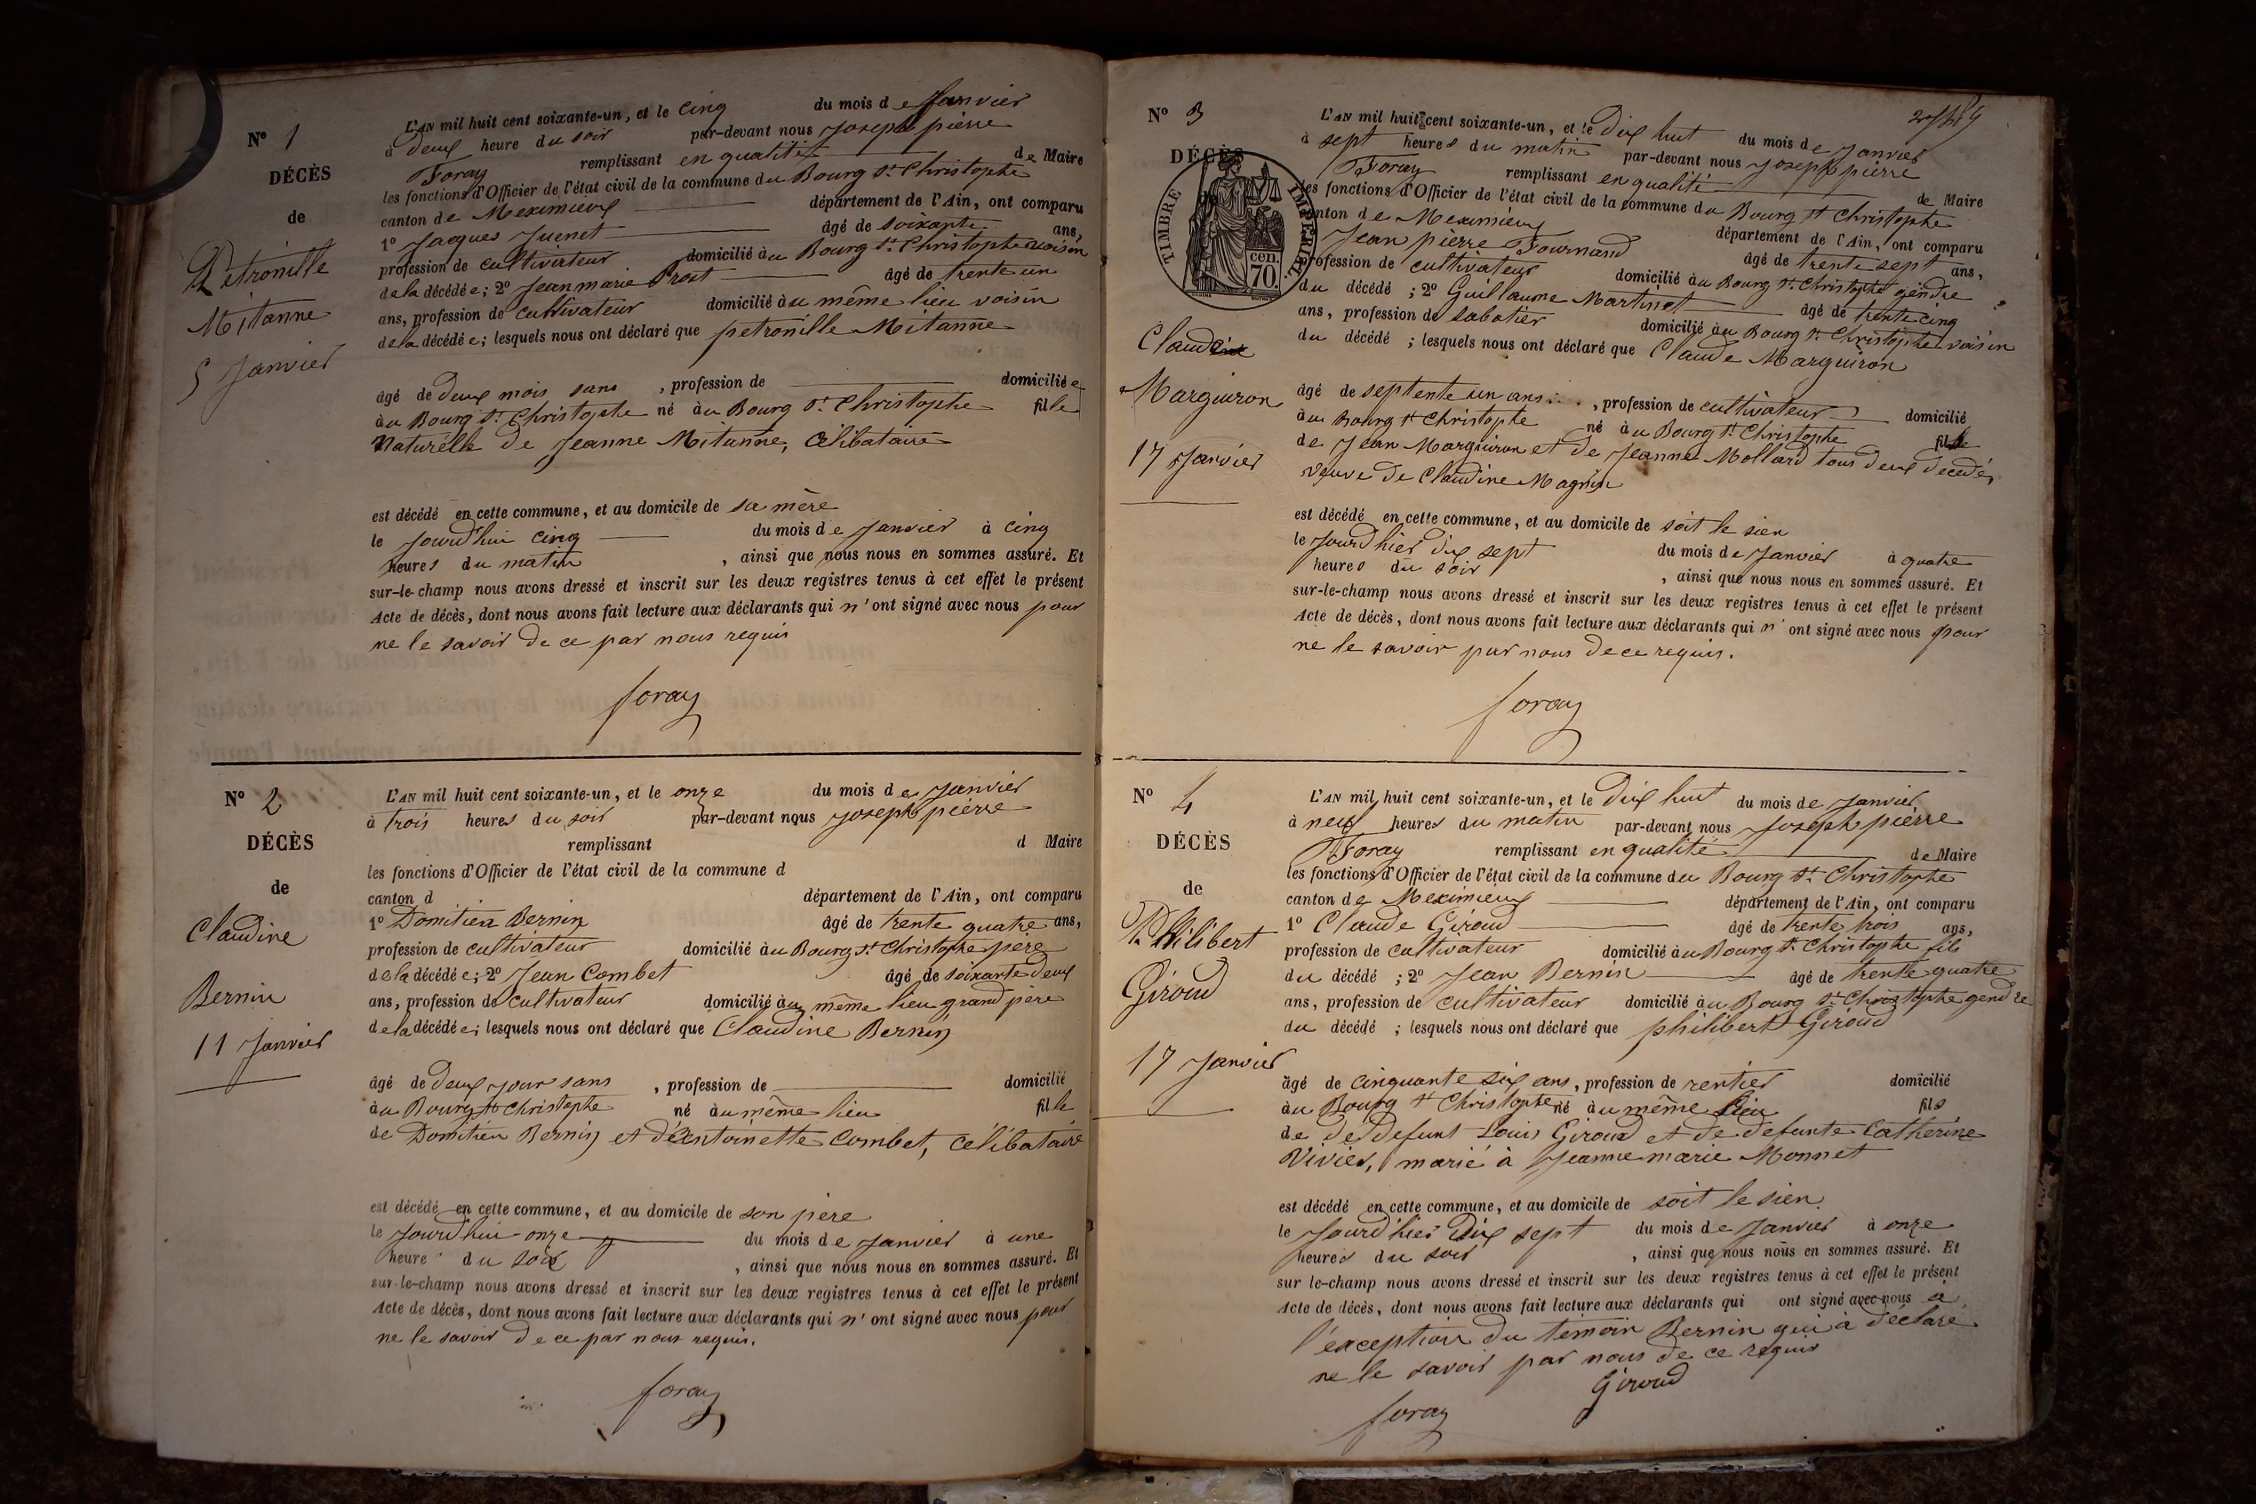 N° 1
DÉCÈS
de
Pétronille
Mitanne
5 Janvier
L'AN mil huit cent soixante-un, et le cinq du mois de Janvier
à deux heure du soir par-devant nous Joseph pierre
Foray remplissant en qualité de Maire
les fonctions d'Officier de l'état civil de la commune du Bourg St Christophe
canton de Meximieux département de l'Ain, ont comparu
1° Jacques Juenet âgé de soixante ans,
profession de cultivateur domicilié au Bourg St Christophe voisin
de la décédée; 2° Jean marie Prost âgé de trente un
ans, profession de cultivateur domicilié au même lieu voisin
de la décédée; lesquels nous ont déclaré que petronille Mitanne
âgé de deux mois sans, profession de domiciliée
au Bourg St Christophe né au Bourg St Christophe fille
Naturelle de Jeanne Mitanne, célibataire
est décédé en cette commune, et au domicile de sa mère
le jourd'hui cinq du mois de Janvier à cinq
heures du matin, ainsi que nous nous en sommes assuré. Et
sur-le-champ nous avons dressé et inscrit sur les deux registres tenus à cet effet le présent
Acte de décès, dont nous avons fait lecture aux déclarants qui n'ont signé avec nous pour
ne le savoir de ce par nous requis
foray
N° 2
DÉCÈS
de
Claudine
Bernin
11 Janvier
L'AN mil huit cent soixante-un, et le onze du mois de Janvier
à trois heures du soir par-devant nous Joseph pierre
remplissant d Maire
les fonctions d'Officier de l'état civil de la commune d
canton d département de l'Ain, ont comparu
1° Domitien Bernin âgé de trente quatre ans,
profession de cultivateur domicilié au Bourg St Christophe père
de la décédée; 2° Jean Combet âgé de soixante deux
ans, profession de cultivateur domicilié au même lieu grand père
de la décédée; lesquels nous ont déclaré que Claudine Bernin
âgé de deux jour sans, profession de domicilié
au Bourg St Christophe né au même lieu fille
de Domitien Bernin et d'Antoinette Combet, célibataire
est décédé en cette commune, et au domicile de son père
le jourd'hui onze du mois de Janvier à une
heure du soir, ainsi que nous nous en sommes assuré. Et
sur-le-champ nous avons dressé et inscrit sur les deux registres tenus à cet effet le présent
Acte de décès, dont nous avons fait lecture aux déclarants qui n'ont signé avec nous pour
ne le savoir de ce par nous requis.
foray
N° 3
DÉCÈS
TIMBRE IMPÉRIAL
70 cen.
Claude
Marguiron
17 Janvier
L'AN mil huit cent soixante-un, et le dix huit du mois de Janvier
à sept heures du matin par-devant nous Joseph pierre
Foray remplissant en qualité de Maire
les fonctions d'Officier de l'état civil de la commune du Bourg St Christophe
canton de Meximieux département de l'Ain, ont comparu
Jean pierre Fournand âgé de trente sept ans,
profession de cultivateur domicilié au Bourg St Christophe gendre
du décédé; 2° Guillaume Martinet âgé de trente cinq
ans, profession de sabotier domicilié au Bourg St Christophe voisin
du décédé; lesquels nous ont déclaré que Claude Marguiron
âgé de septente un ans, profession de cultivateur domicilié
au Bourg St Christophe né au Bourg St Christophe fils
de Jean Marguiron et de Jeanne Mollard tous deux decedés
veuve de Claudine Magnin
est décédé en cette commune, et au domicile de soit le sien
le jourd'hier dix sept du mois de Janvier à quatre
heures du soir, ainsi que nous nous en sommes assuré. Et
sur-le-champ nous avons dressé et inscrit sur les deux registres tenus à cet effet le présent
Acte de décès, dont nous avons fait lecture aux déclarants qui n'ont signé avec nous pour
ne le savoir par nous de ce requis.
foray
N° 4
DÉCÈS
de
Philibert
Giroud
17 Janvier
L'AN mil huit cent soixante-un, et le dix huit du mois de Janvier
à neuf heures du matin par-devant nous Joseph pierre
Foray remplissant en qualité de Maire
les fonctions d'Officier de l'état civil de la commune du Bourg St Christophe
canton de Meximieux département de l'Ain, ont comparu
1° Claude Giroud âgé de trente trois ans,
profession de cultivateur domicilié au Bourg St Christophe fils
du décédé; 2° Jean Bernin âgé de trente quatre
ans, profession de cultivateur domicilié au Bourg St Christophe gendre
du décédé; lesquels nous ont déclaré que philibert Giroud
âgé de cinquante six ans, profession de rentier domicilié
au Bourg St Christophe né au même lieu fils
de de defunt Louis Giroud et de defunte Catherine
Vivier, marié à Jeanne marie Monnet
est décédé en cette commune, et au domicile de soit le sien
le jourd'hier dix sept du mois de Janvier à onze
heures du soir, ainsi que nous nous en sommes assuré. Et
sur le-champ nous avons dressé et inscrit sur les deux registres tenus à cet effet le présent
Acte de décès, dont nous avons fait lecture aux déclarants qui ont signé avec nous à
l'exception du témoin Bernin qui a déclaré
ne le savoir par nous de ce requis
Giroud
foray